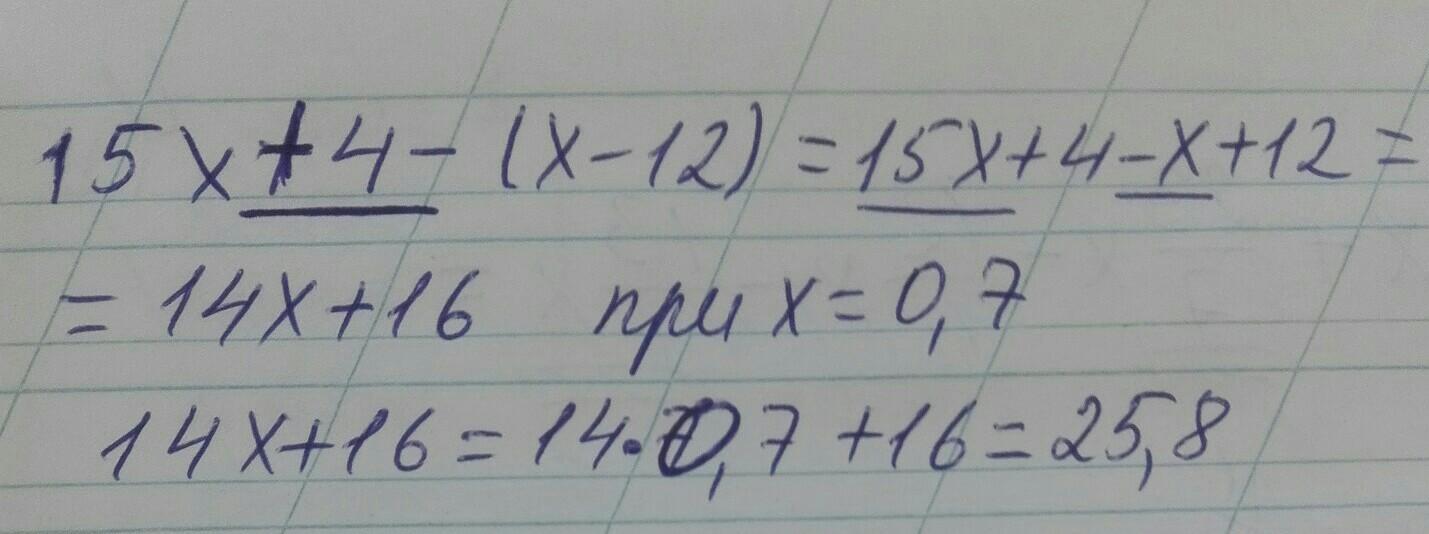 15x+4-(x-12)=15x+4-x+12=
=14x+16 при x=0,7
14x+16=14·0,7+16=25,8